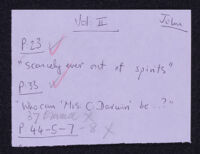 Vol: II John
P. 23
"scarcely ever out of spirits"
P. 33
"Who can 'Mrs. C. Darwin' be ..?"
37
P 44-5-7-8 X